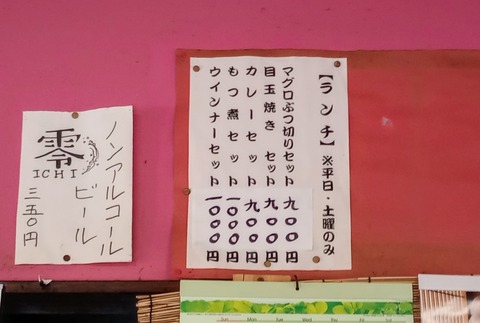 【ランチ】※平日・土曜のみ
マグロぶつ切りセット 九〇〇円
目玉焼き セット 九〇〇円
カレーセット 九〇〇円
もつ煮セット 一〇〇〇円
ウインナーセット 一〇〇〇円
ノンアルコール
ビール
零
ICHI
三五〇円
Sun Mon Tue Wed Thu Fri Sat